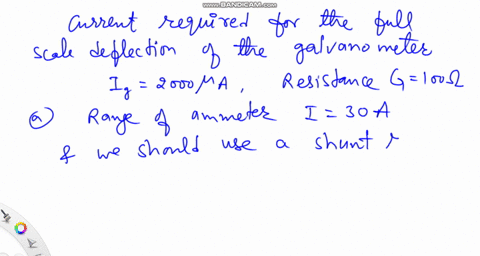 www.BANDICAM.com
Current required for the full
scale deflection of the galvanometer
Ig = 2000 μA, Resistance G = 100Ω
a) Range of ammeter I = 30 A
& we should use a shunt r